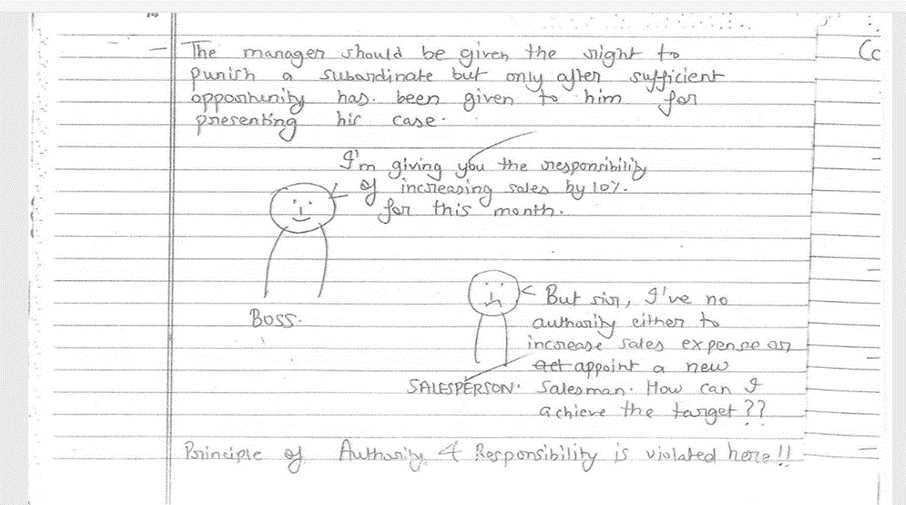 — The manager should be given the right to
punish a subordinate but only after sufficient
opportunity has been given to him for
presenting his case.
I'm giving you the responsibility
of increasing sales by 10%.
for this month.
BOSS.
But sir, I've no
authority either to
increase sales expense or
appoint a new
salesman. How can I
achieve the target??
SALESPERSON.
Principle of Authority & Responsibility is violated here!!
Cc